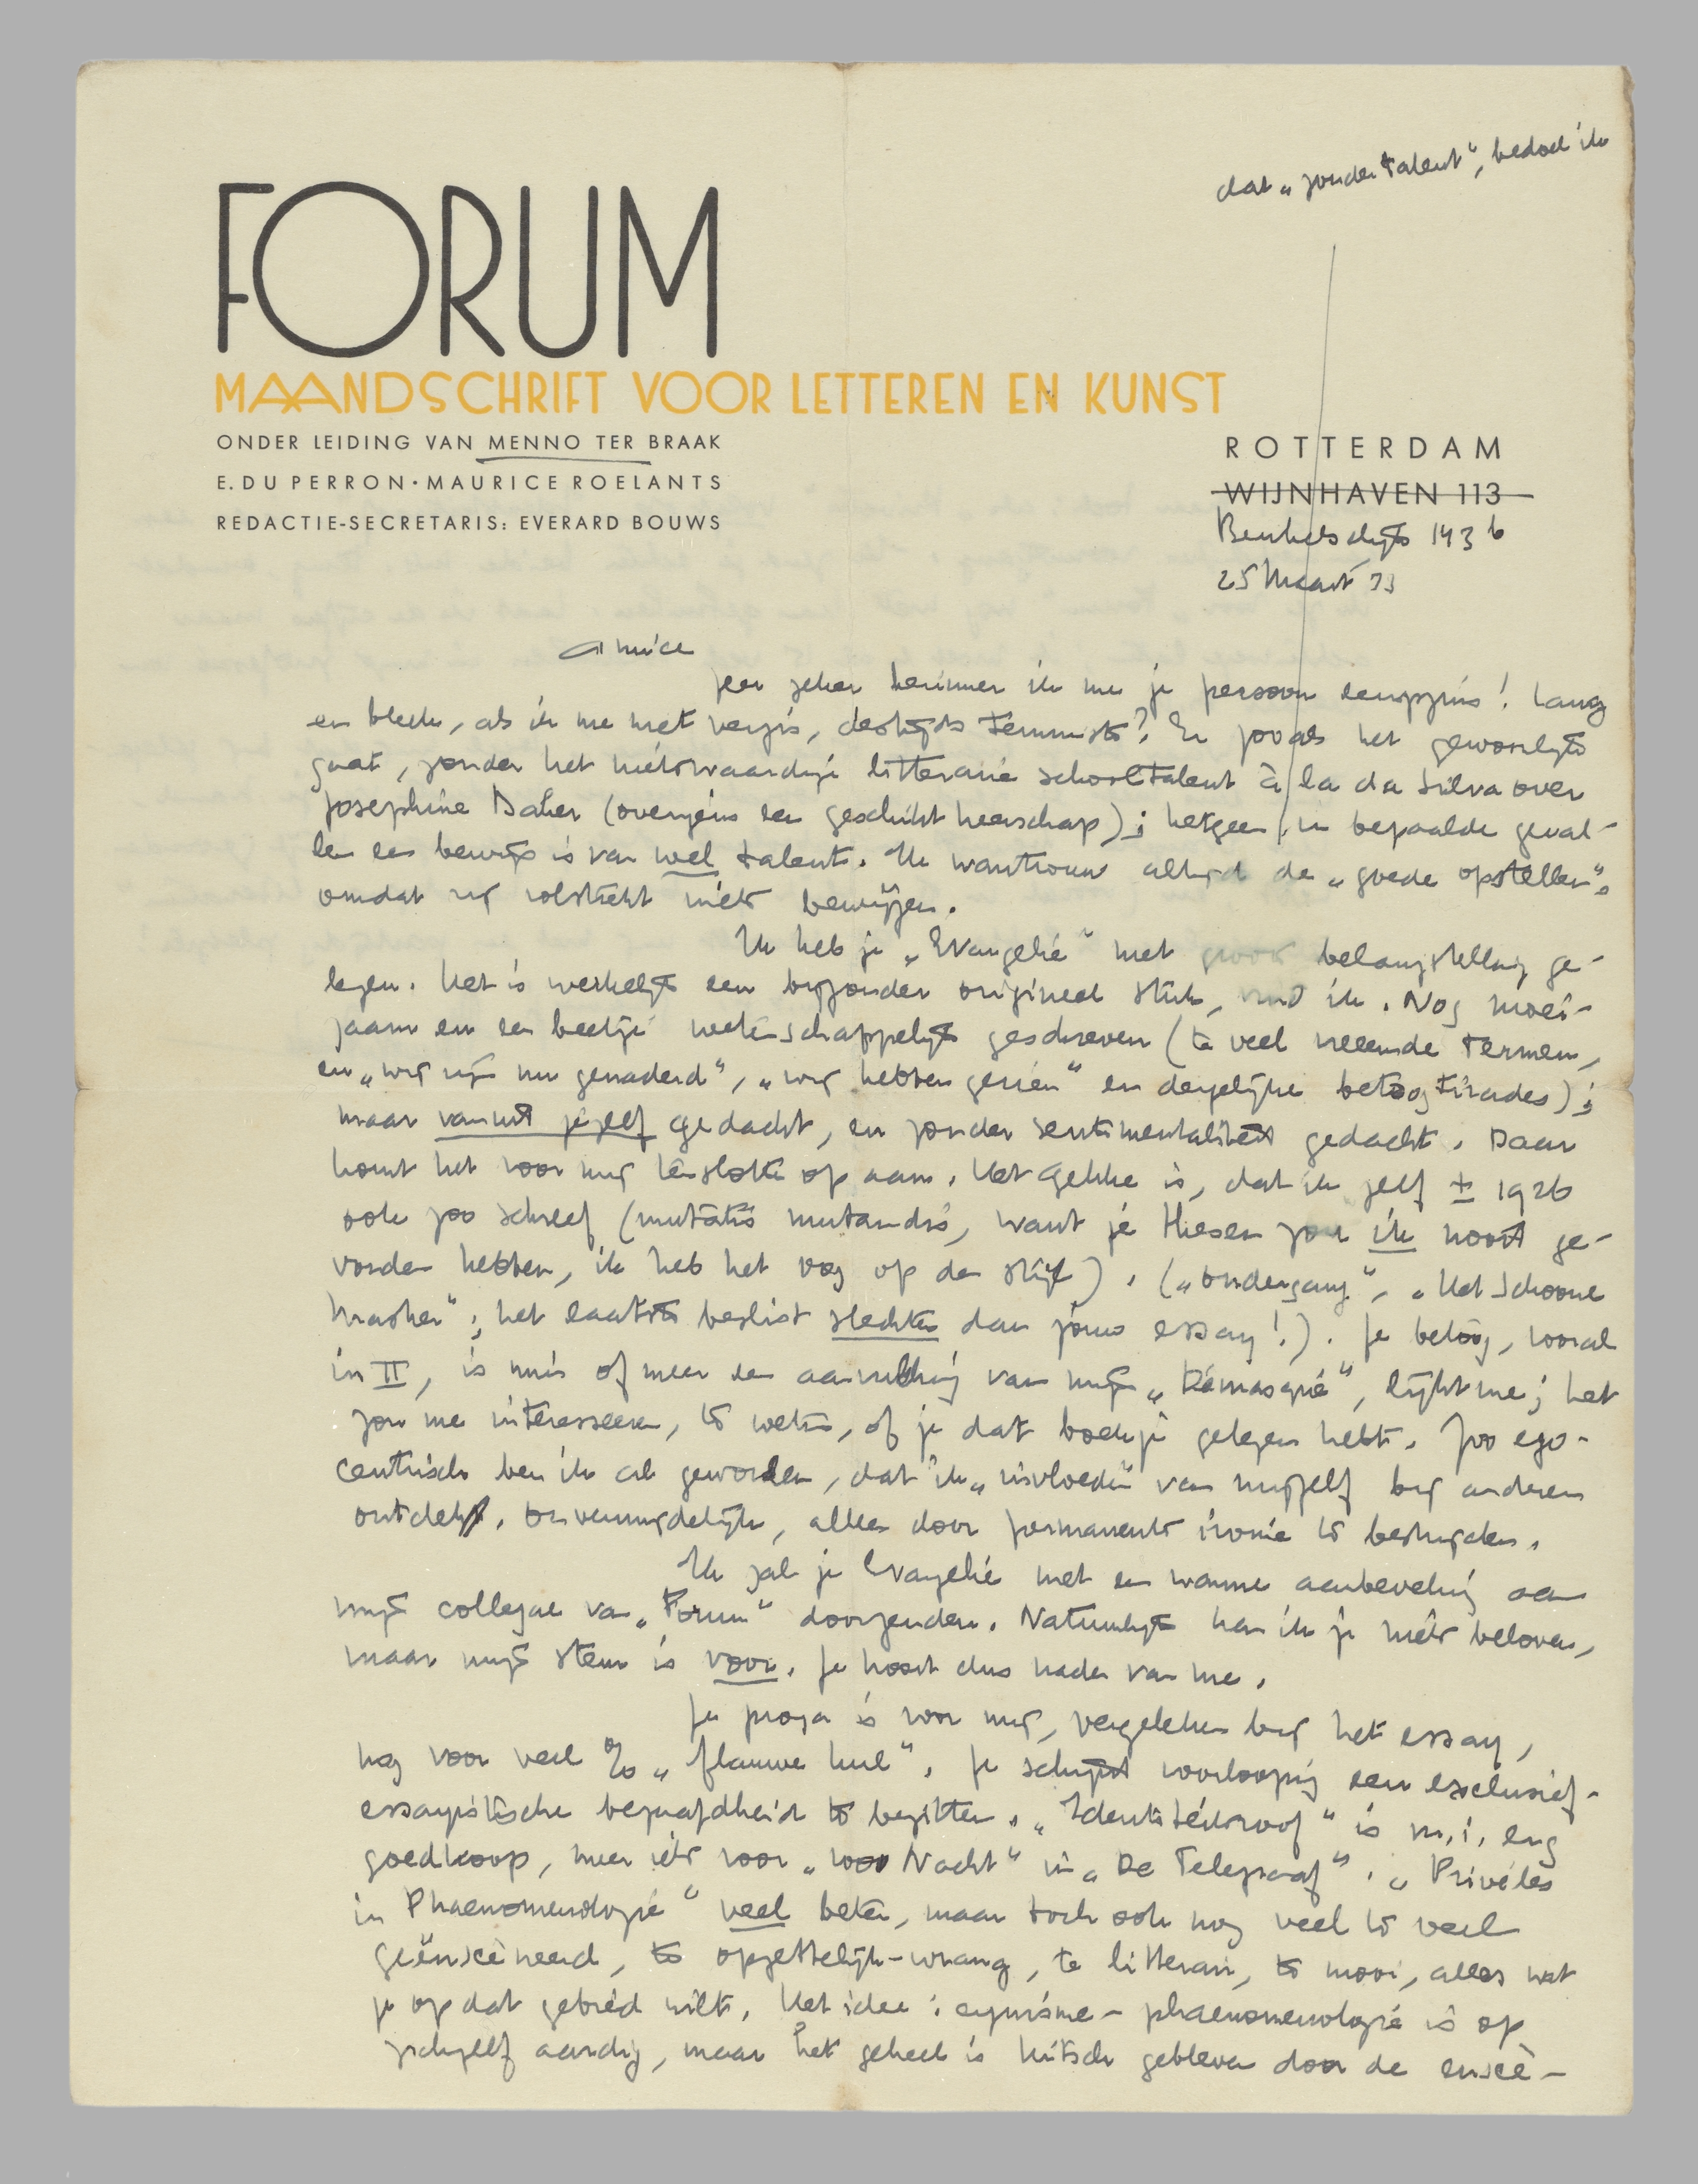 dat „zonder talent", bedoel ik
FORUM
MAANDSCHRIFT VOOR LETTEREN EN KUNST
ONDER LEIDING VAN MENNO TER BRAAK
E. DU PERRON · MAURICE ROELANTS
REDACTIE-SECRETARIS: EVERARD BOUWS
ROTTERDAM
WIJNHAVEN 113
Beukelsdijk 143 b
25 Maart 33
Amice
Zeer zeker herinner ik me je persoon eenigszins! Lang
en bleek, als ik me niet vergis, destijds tennist? En zooals het gewoonlijk
gaat, zonder het nietswaardige litteraire schooltalent à la da Silva over
Josephine Baker (overigens een geschikt heerschap); hetgeen in bepaalde geval-
len een bewijs is van wel talent. Ik wantrouw altijd de „goede opstellen",
omdat zij volstrekt niets bewijzen.
Ik heb je „Evangelie" met groote belangstelling ge-
lezen. Het is werkelijk een bijzonder origineel stuk, vind ik. Nog moei-
zaam en een beetje wetenschappelijk geschreven (te veel vreemde termen,
en „wij zijn nu genaderd", „wij hebben gezien" en dergelijke betoogtirades);
maar vanuit jezelf gedacht, en zonder sentimentaliteit gedacht. Daar
komt het voor mij tenslotte op aan. Het gekke is, dat ik zelf ± 1926
ook zoo schreef (mutatis mutandis, want je thesen zou ik nooit ge-
vonden hebben, ik heb het nog op de stijl). („Ondergang", „Het Schoone
Masker"; het laatste beslist slechter dan jouw essay!). Je betoog, vooral
in II, is min of meer een aanvulling van mijn „Démasqué", lijkt me; het
zou me interesseeren, te weten, of je dat boekje gelezen hebt. Zoo ego-
centrisch ben ik al geworden, dat ik „invloeden" van mijzelf bij anderen
ontdek. Onvermijdelijk, alleen door permanente ironie te bestrijden.
Ik zal je Evangelie met een warme aanbeveling aan
mijn collegae van „Forum" doorzenden. Natuurlijk kan ik je niets beloven,
maar mijn stem is voor. Je hoort dus nader van me.
Je proza is voor mij, vergeleken bij het essay,
nog voor veel % „flauwe kul". Je schijnt voorloopig een exclusief-
essayistische begaafdheid te bezitten. „Identiteitsroof" is m.i. erg
goedkoop, meer iets voor „voor Nacht" in „De Telegraaf". „Privéles
in Phaenomenologie" veel beter, maar toch ook nog veel te veel
geënsceneerd, te opzettelijk-wrang, te litterair, te mooi, alles wat
je op dat gebied wilt. Het idee: cynisme-phaenomenologie is op
zichzelf aardig, maar het geheel is kitsch gebleven door de enscè-